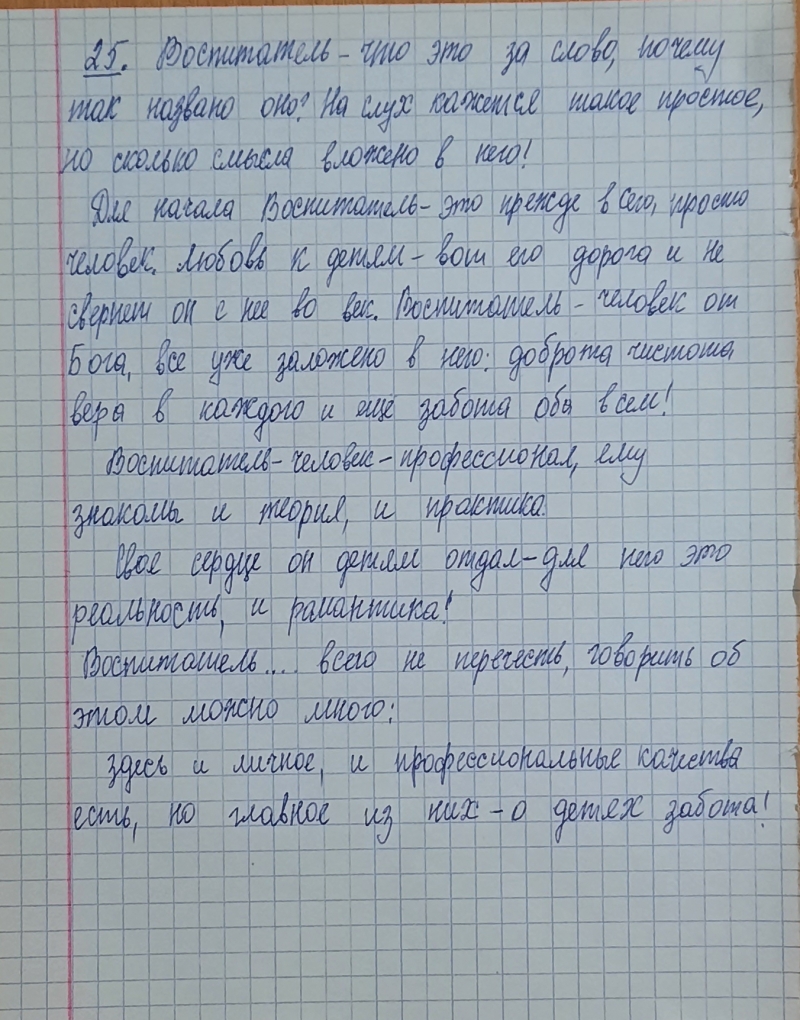 25. Воспитатель – что это за слово, почему
так названо оно? На слух кажется такое простое,
но сколько смысла вложено в него!
Для начала Воспитатель – это прежде всего, просто
человек. Любовь к детям – вот его дорога и не
свернет он с нее во век. Воспитатель – человек от
Бога, все уже заложено в него: доброта чистота,
вера в каждого и ещё забота обо всем!
Воспитатель – человек – профессионал, ему
знакомы и теория, и практика.
Свое сердце он детям отдал – для него это
реальность, и романтика!
Воспитатель... всего не перечесть, говорить об
этом можно много:
здесь и личное, и профессиональные качества
есть, но главное из них – о детях забота!